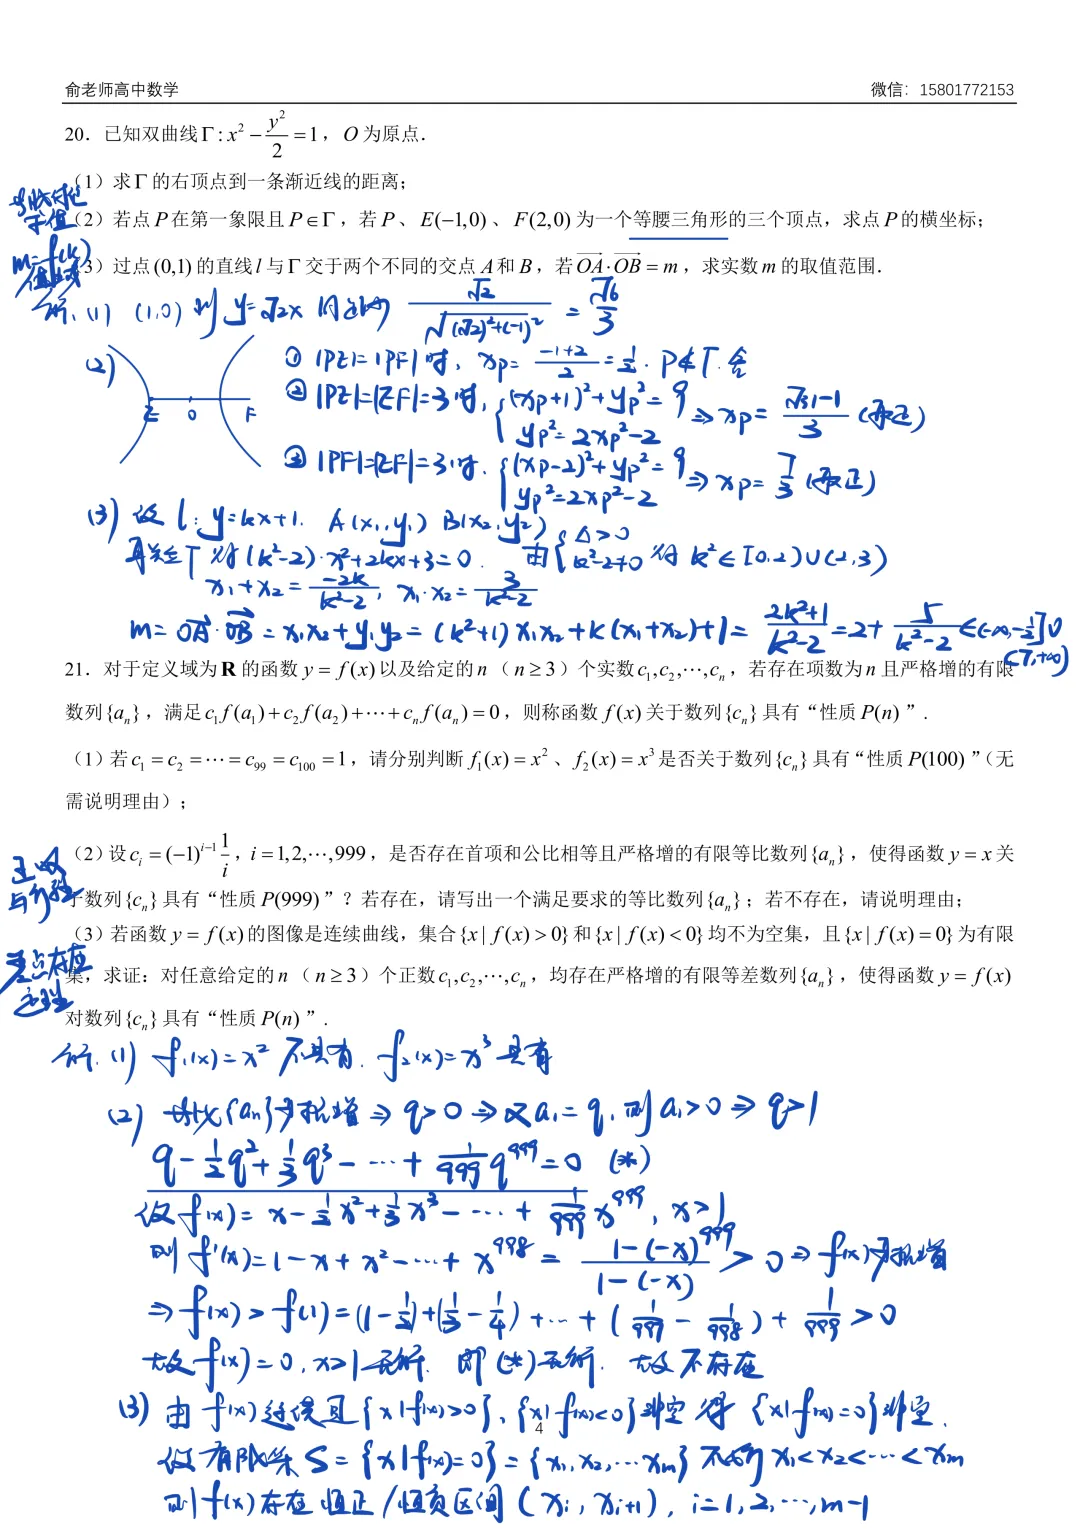 俞老师高中数学 微信：15801772153
20．已知双曲线Γ：x² − y²/2 = 1，O 为原点．
（1）求Γ的右顶点到一条渐近线的距离；
（2）若点P在第一象限且P∈Γ，若P、E(−1,0)、F(2,0)为一个等腰三角形的三个顶点，求点P的横坐标；
m=f(k)
（3）过点(0,1)的直线l与Γ交于两个不同的交点A和B，若OA·OB = m，求实数m的取值范围．
解. (1) (1,0) 到 y=√2x 的距离 √2/√((√2)²+(-1)²) = √6/3
(2) ① |PE|=|PF|时, xp= (-1+2)/2 = 1/2. P∉Γ. 舍
② |PE|=|EF|=3时, {(xp+1)²+yp²=9 yp²=2xp²-2 ⇒ xp= (√31-1)/3 (取正)
E O F
③ |PF|=|EF|=3时. {(xp-2)²+yp²=9 yp²=2xp²-2 ⇒ xp= 7/3 (取正)
(3) 设 l: y=kx+1. A(x₁,y₁) B(x₂,y₂)
再联立Γ 得 (k²-2)·x²+2kx+3=0. 由{Δ>0 k²-2≠0 得 k²∈[0,2)∪(2,3)
x₁+x₂= -2k/(k²-2), x₁·x₂= 3/(k²-2)
m= OA·OB = x₁x₂+y₁y₂ = (k²+1)x₁x₂+k(x₁+x₂)+1 = (2k²+1)/(k²-2) =2+ 5/(k²-2) ∈(-∞,-1/2]∪(7,+∞)
21．对于定义域为R的函数y = f(x)以及给定的n（n≥3）个实数c₁,c₂,⋯,cₙ，若存在项数为n且严格增的有限
数列{aₙ}，满足c₁f(a₁)+c₂f(a₂)+⋯+cₙf(aₙ)=0，则称函数f(x)关于数列{cₙ}具有“性质P(n)”．
（1）若c₁ = c₂ = ⋯ = c₉₉ = c₁₀₀ = 1，请分别判断f₁(x) = x²、f₂(x) = x³是否关于数列{cₙ}具有“性质P(100)”（无
需说明理由）；
（2）设cᵢ = (−1)ⁱ⁻¹ 1/i，i = 1,2,⋯,999，是否存在首项和公比相等且严格增的有限等比数列{aₙ}，使得函数y = x关
于数列{cₙ}具有“性质P(999)”？若存在，请写出一个满足要求的等比数列{aₙ}；若不存在，请说明理由；
（3）若函数y = f(x)的图像是连续曲线，集合{x | f(x) > 0}和{x | f(x) < 0}均不为空集，且{x | f(x) = 0}为有限
零点存在
集，求证：对任意给定的n（n≥3）个正数c₁,c₂,⋯,cₙ，均存在严格增的有限等差数列{aₙ}，使得函数y = f(x)
定理
对数列{cₙ}具有“性质P(n)”．
解. (1) f₁(x)=x² 不具有. f₂(x)=x³ 具有
(2) {aₙ}严格增 ⇒ q>0 ⇒ 又a₁=q, 则a₁>0 ⇒ q>1
q- 1/2 q²+ 1/3 q³- ⋯+ 1/999 q⁹⁹⁹=0 (*)
设f(x)= x- 1/2 x²+ 1/3 x³- ⋯+ 1/999 x⁹⁹⁹, x>1
则 f'(x)=1-x+x²-⋯+x⁹⁹⁸ = (1-(-x)⁹⁹⁹)/(1-(-x)) >0 ⇒ f(x)严格增
⇒ f(x)>f(1)=(1- 1/2)+(1/3 - 1/4)+⋯+(1/997 - 1/998)+ 1/999 >0
故f(x)=0, x>1无解. 即(*)无解. 故不存在
(3) 由 f(x)连续且{x|f(x)>0}、{x|f(x)<0}非空 得 {x|f(x)=0}非空.
4
设有限集 S={x|f(x)=0}={x₁,x₂,⋯xm} 不妨x₁<x₂<⋯<xm
则f(x)存在恒正/恒负区间(xᵢ,xᵢ₊₁), i=1,2,⋯,m-1